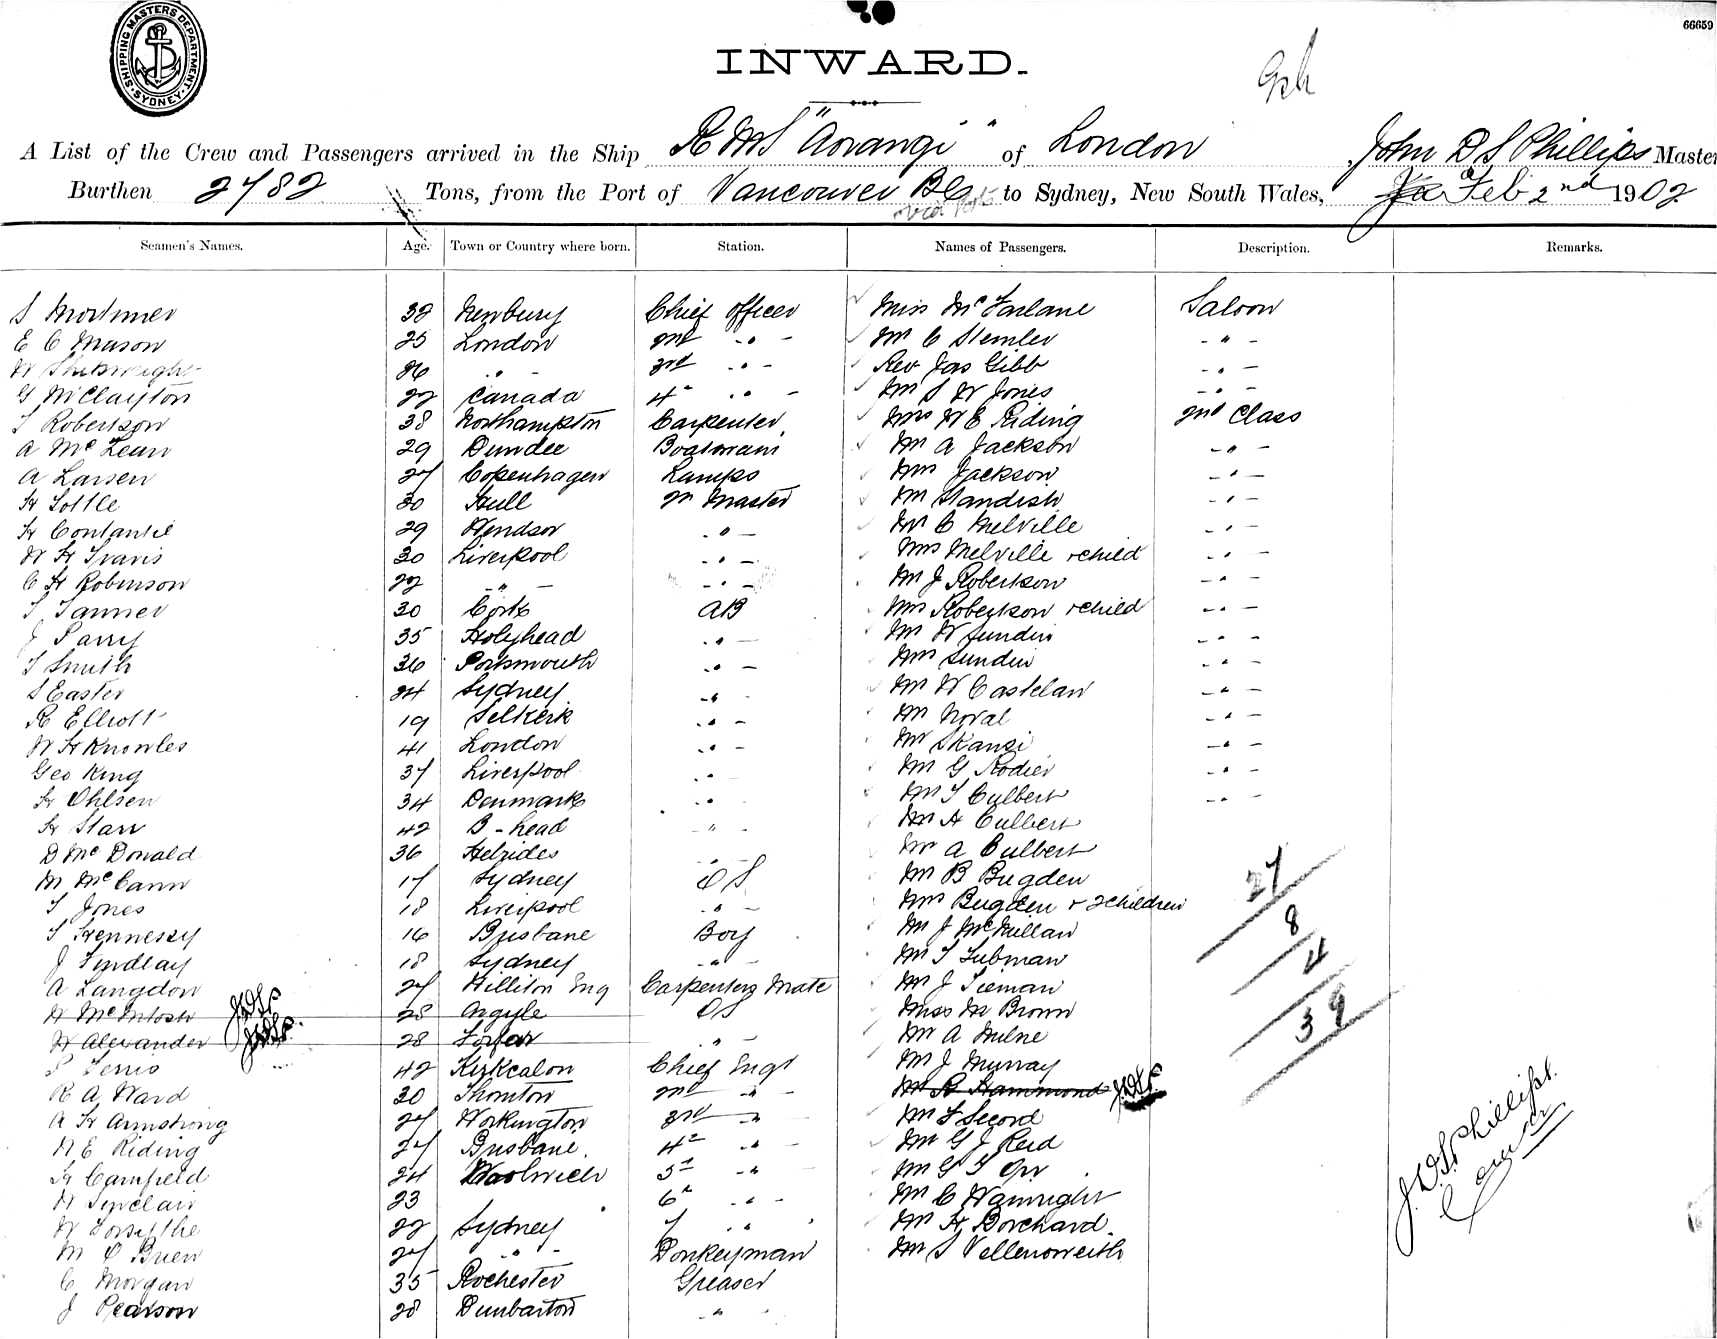 SHIPPING MASTERS DEPARTMENT. SYDNEY
66659
INWARD.
A List of the Crew and Passengers arrived in the Ship R M S "Aorangi" of London John D S Phillips Master
Burthen 2782 Tons, from the Port of Vancouver BC to Sydney, New South Wales, Feb 2nd 1902
Seamen's Names. Age. Town or Country where born. Station. Names of Passengers. Description. Remarks.
S Mortimer 38 Newbury Chief Officer Miss McFarlane Saloon
E C Mason 25 London 2nd " Mr C Stemler - " -
26 - " - 3rd " Rev Jas Gibb - " -
G McClayton 22 Canada 4th " Mr S W Jones - " -
T Robertson 38 Northampton Carpenter Mrs W E Riding 2nd Class
A McLean 29 Dundee Boatswain Mr A Jackson - " -
A Larsen 27 Copenhagen Lamps Mrs Jackson - " -
H Lottle 30 Hull Qr Master Mr Standish - " -
H 29 Windsor - " - Mr C Melville - " -
W H Travis 30 Liverpool - " - Mrs Melville + child - " -
C H Robinson 22 - " - - " - Mr J Robertson - " -
T Tanner 30 Cork AB Mrs Robertson + child - " -
J Parry 35 Holyhead - " - Mr W Sundin - " -
T Smith 36 Portsmouth - " - Mrs Sundin - " -
S Easter 24 Sydney - " - Mr W Castelan - " -
R Elliott 19 Selkirk - " - Mr Noval - " -
W H Knowles 41 London - " - Mr Skansi - " -
Geo King 37 Liverpool - " - Mr G Rodier - " -
H Ohlsen 34 Denmark - " - Mr T Culbert - " -
H Starr 42 B-head - " - Mr H Culbert
D McDonald 36 Hebrides - " - Mr A Culbert
M McCann 17 Sydney O S Mr B Bugden 27
T Jones 18 Liverpool - " - Mrs Bugden + 2 children
T Hennessy 16 Brisbane Boy Mr J McMillan 8
J Findlay 18 Sydney - " - Mr T Tubman 4
A Langdon 27 Eng Carpenters Mate Mr J Tieman
W McIntosh JDSP. 28 Argyle OS Miss M Brown 39
W Alexander JDSP. 28 Forfar " Mr A Milne
42 Kirkcalon Chief Engr Mr J Murray
R A Ward 30 Thornton 2nd " Mr R Hammond JDSP.
A H Armstrong 27 Workington 3rd " Mr F Secord
W E Riding 27 Brisbane 4th " Mr G J Reid
H Camfield 24 Woolwich 5th " Mr G T Orr
W Sinclair 23 6th " Mr C Wainright
W Forsythe 22 Sydney 7 " Mr H Borchard
M O'Brien 27 - " - Donkeyman Mr S Vellenoweith
C Morgan 35 Rochester Greaser
J Pearson 28 Dunbarton "
J.D.S. Phillips.